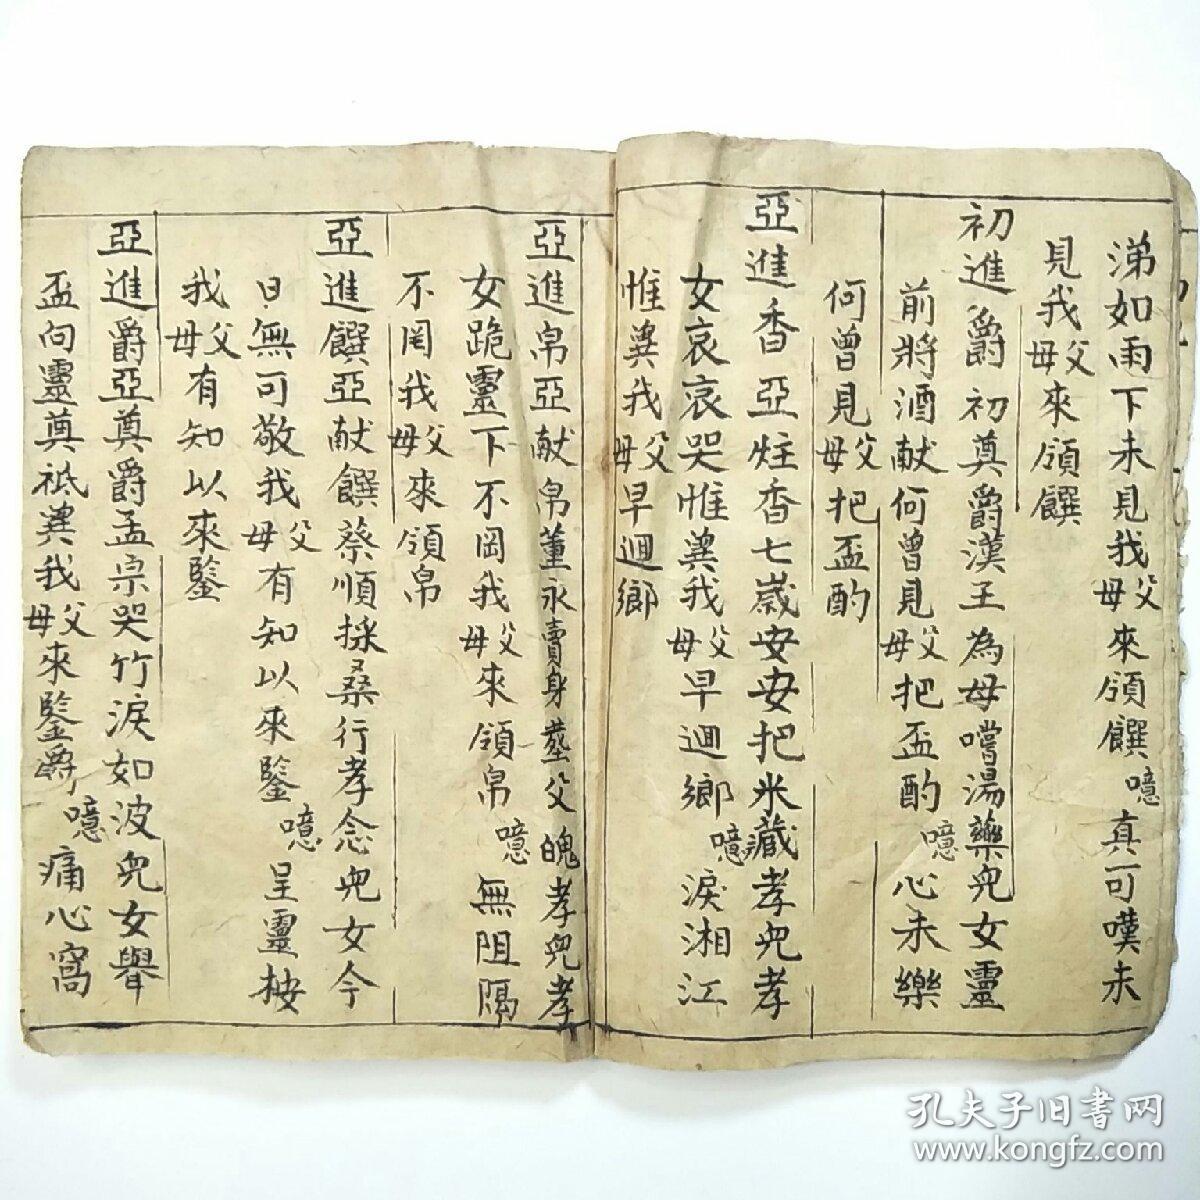 涕如雨下未見我父母來領饌噫真可嘆未
見我父母來領饌
初進爵初奠爵漢王為母嚐湯藥兒女靈
前將酒献何曾見父母把盃酌噫心未樂
何曾見父母把盃酌
亞進香亞炷香七歲安安把米藏孝兒孝
女哀哀哭惟冀我父母早迴鄉噫淚湘江
惟冀我父母早迴鄉
亞進帛亞献帛董永賣身塟父魄孝兒孝
女跪靈下不罔我父母來領帛噫無阻隔
不罔我父母來領帛
亞進饌亞献饌蔡順採桑行孝念兒女今
日無可敬我父母有知以來鑒噫呈靈桉
我父母有知以來鑒
亞進爵亞奠爵孟宗哭竹淚如波兒女舉
盃向靈奠祗冀我父母來鑒爵噫痛心窩
孔夫子旧书网
www.kongfz.com